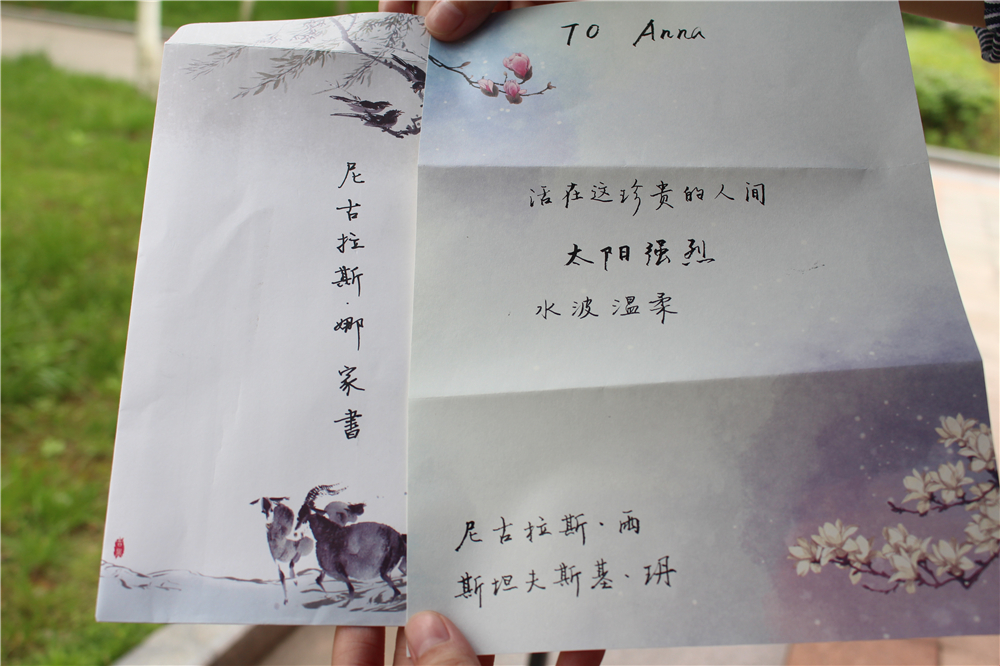 尼古拉斯·娜家書
TO Anna
活在这珍贵的人间
太阳强烈
水波温柔
尼古拉斯·西
斯坦夫斯基·玬